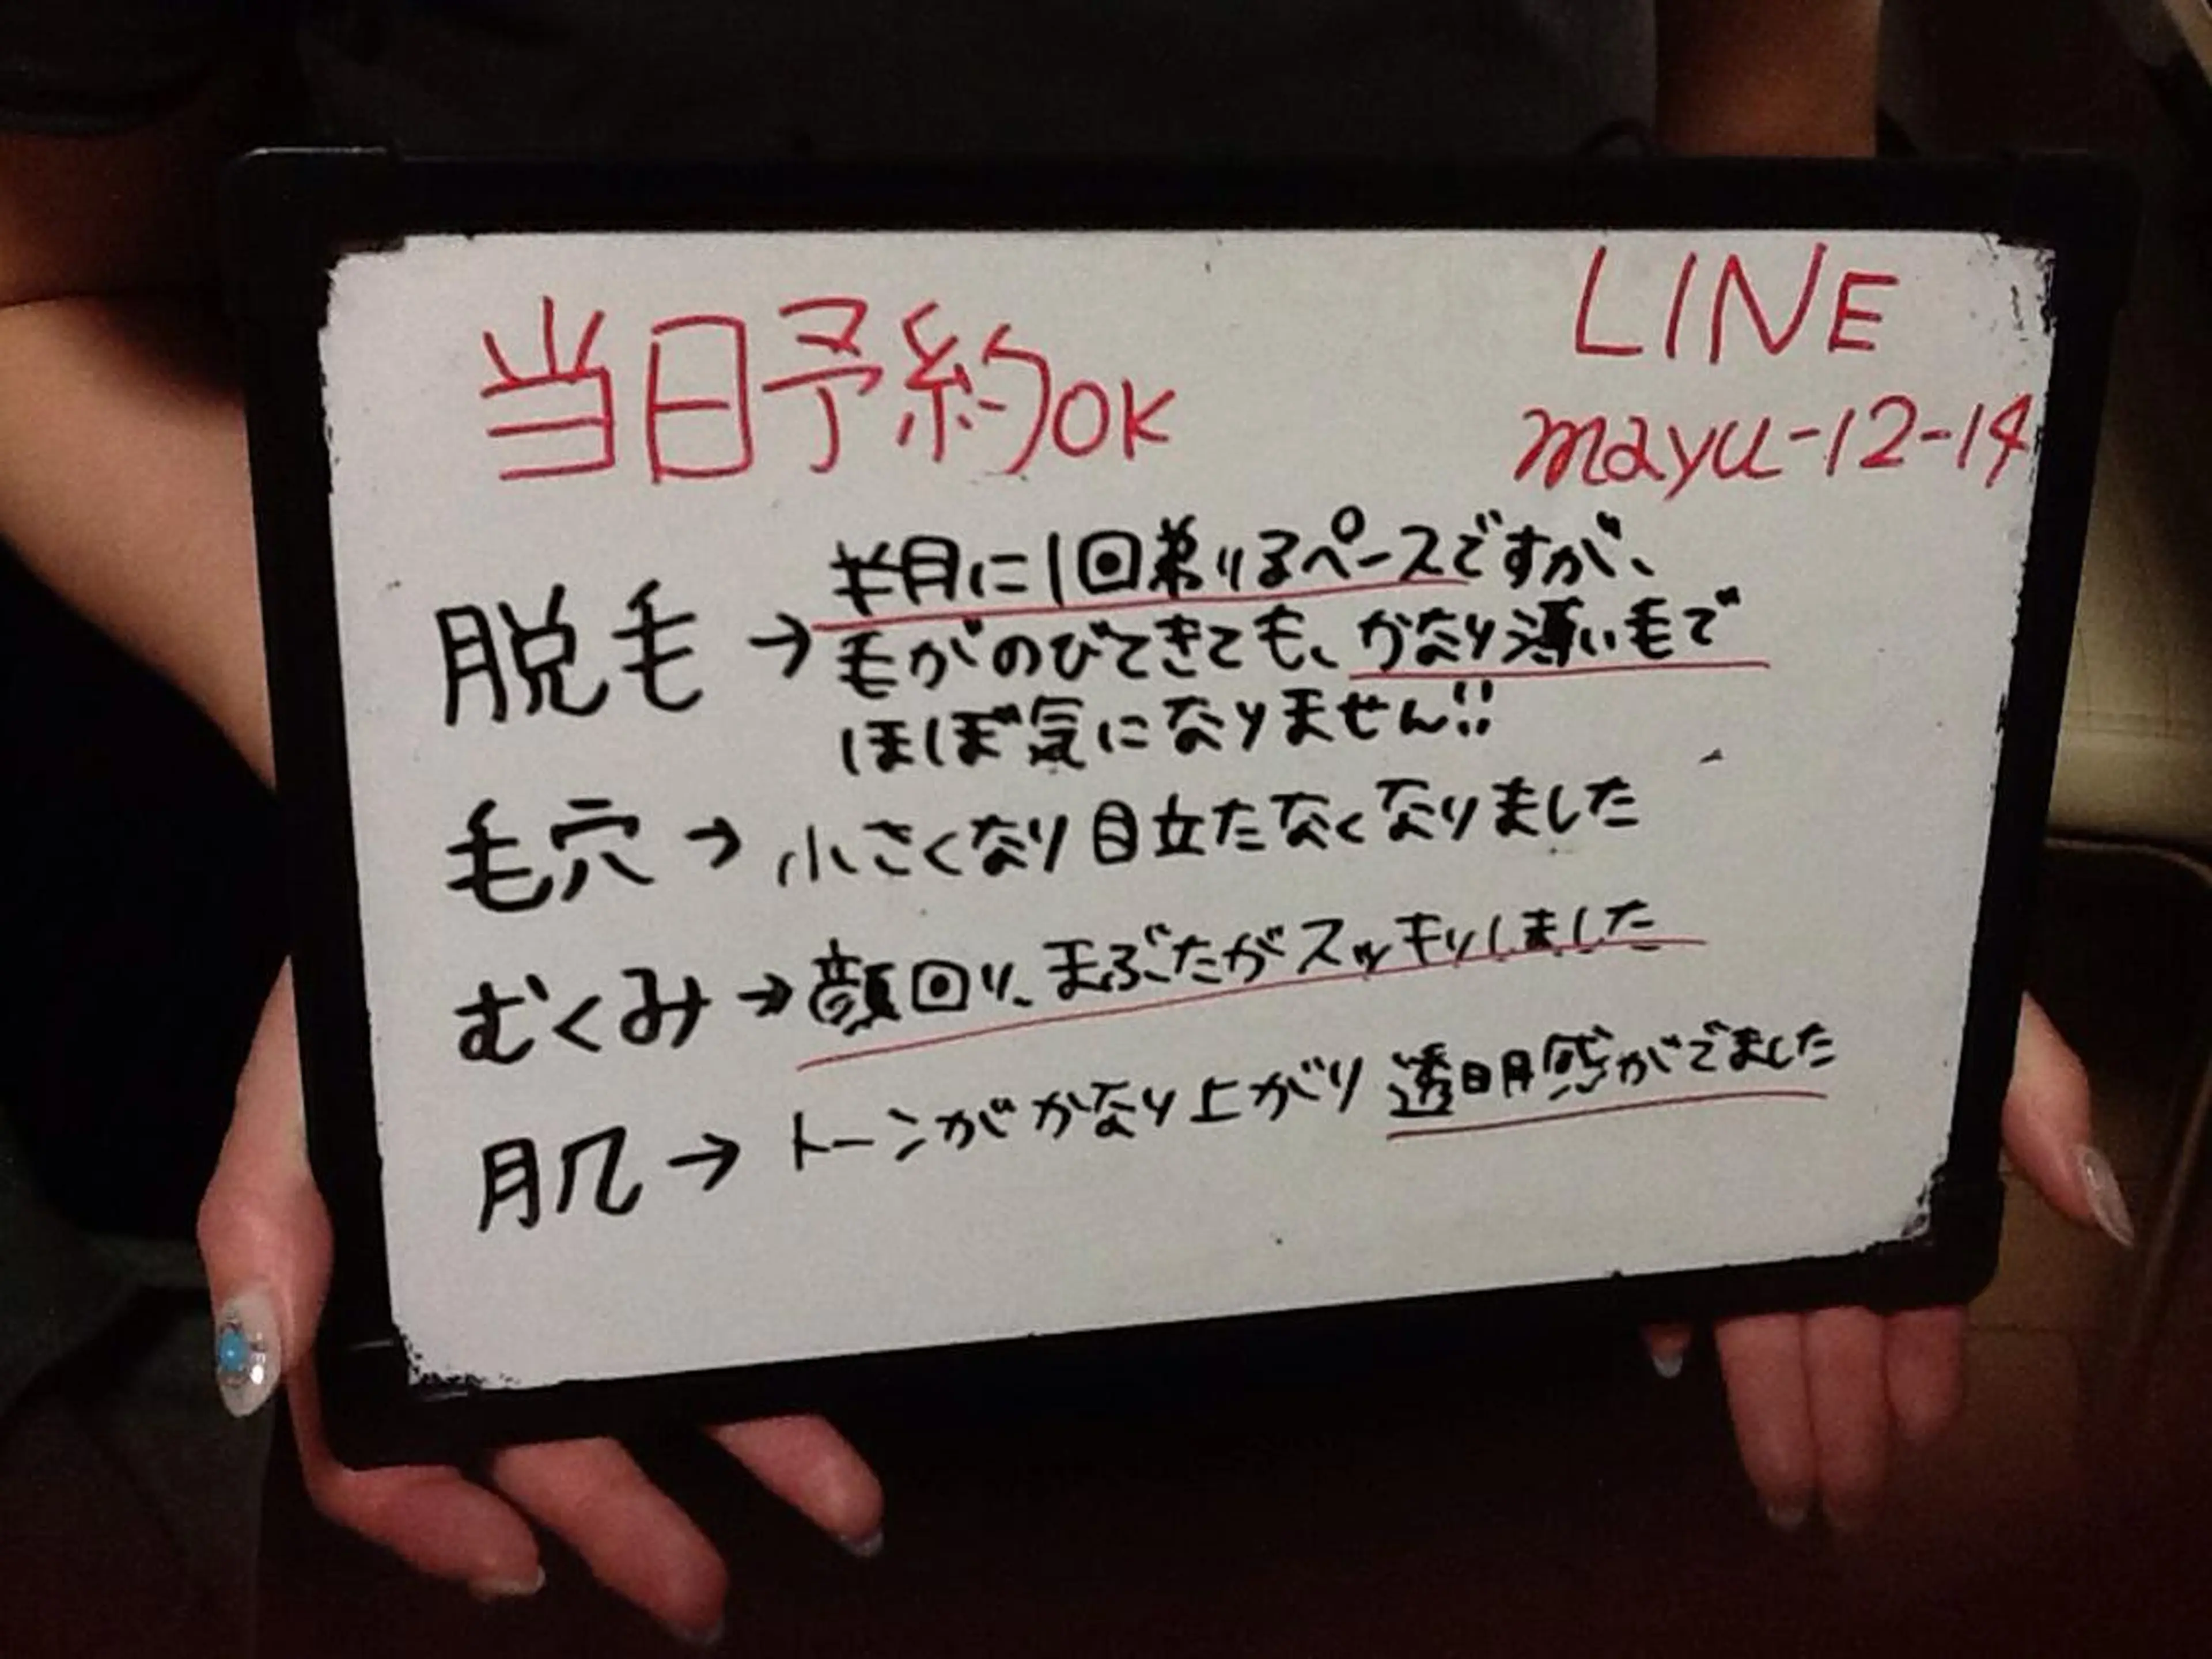 当日予約OK
LINE
mayu-12-14
脱毛→
半月に1回剃りるペースですが、
毛がのびてきても、かなり薄い毛で
ほぼ気になりません!!
毛穴→小さくなり目立たなくなりました
むくみ→顔回り、まぶたがスッキリしました
肌→トーンがかなり上がり透明感がでました